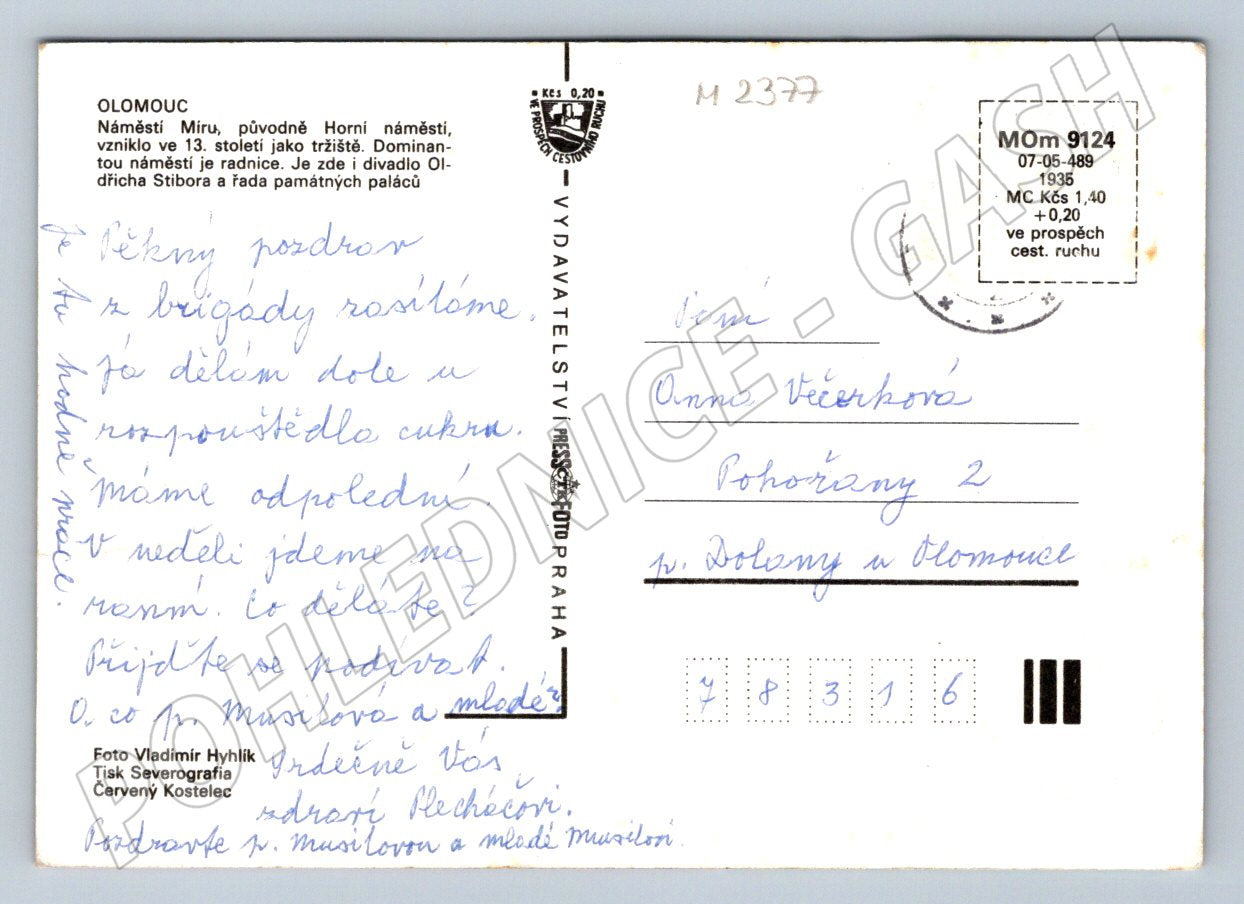 OLOMOUC
Náměstí Míru, původně Horní náměstí,
vzniklo ve 13. století jako tržiště. Dominan-
tou náměstí je radnice. Je zde i divadlo Ol-
dřicha Stibora a řada památných paláců
Pěkný pozdrav
z brigády zasíláme.
Já dělám dole u
rozpouštědla cukru.
Máme odpolední.
V neděli jdeme na
ranní. Co děláte?
Přijďte se podívat.
A co p. Musilová a mladé?
Srdečně Vás
zdraví Plecháčovi.
Pozdravte p. Musilovou a mladé Musilovi.
Je tu hodně práce.
Foto Vladimír Hyhlík
Tisk Severografia
Červený Kostelec
Kčs 0,20
VE PROSPĚCH CESTOVNÍHO RUCHU
VYDAVATELSTVÍ PRESSFOTO PRAHA
ČTK
M 2377
MOm 9124
07-05-489
1935
MC Kčs 1,40
+0,20
ve prospěch
cest. ruchu
Anna Večerková
Pohořany 2
p. Dolany u Olomouce
7 8 3 1 6
POHLEDNICE - GASH